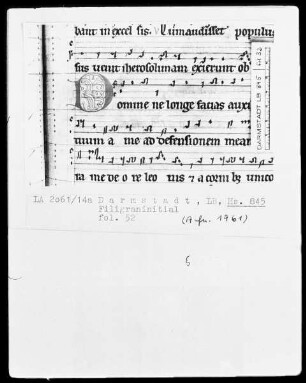 dant in excel sis. Cum audisset populus
sus venit iherosolimam exierunt ob
Domine ne longe facias auxi
lium a me ad defensionem meam
ra me de o re leo nis & a cornibꝫ unico
DARMSTADT LB 845 Bl 32
LA 2061/14a Darmstadt, LB, Hs. 845
Filigraninitial
fol. 32
(Afn. 1961)